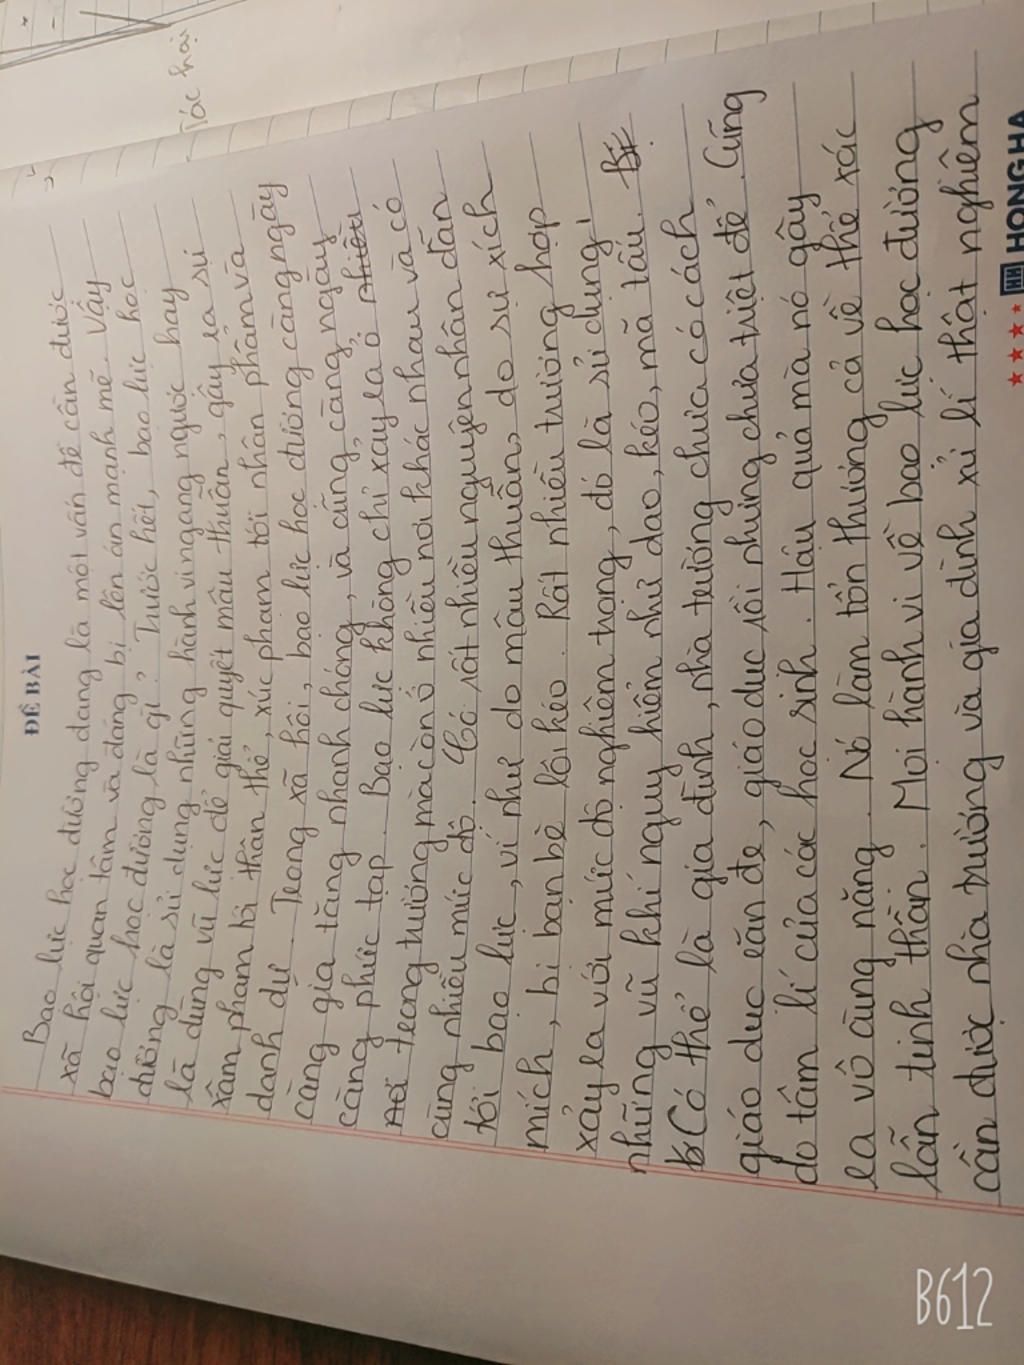 ĐỀ BÀI
Bạo lực học đường đang là một vấn đề cần được
xã hội quan tâm và đáng bị lên án mạnh mẽ. Vậy
bạo lực học đường là gì? Trước hết, bạo lực học
đường là sử dụng những hành vi ngang ngược hay
là dùng vũ lực để giải quyết mâu thuẫn, gây ra sự
xâm phạm tới thân thể, xúc phạm tới nhân phẩm và
danh dự. Trong xã hội, bạo lực học đường càng ngày
càng gia tăng nhanh chóng, và cũng càng ngày
càng phức tạp. Bạo lực không chỉ xảy ra ở
trong trường mà còn ở nhiều nơi khác nhau và có
cùng nhiều mức độ. Có rất nhiều nguyên nhân dẫn
tới bạo lực, ví như do mâu thuẫn, do sự xích
mích, bị bạn bè lôi kéo. Rất nhiều trường hợp
xảy ra với mức độ nghiêm trọng, đó là sử dụng
những vũ khí nguy hiểm như dao, kéo, mã tấu.
Có thể là gia đình, nhà trường chưa có cách
giáo dục răn đe, giáo dục rồi nhưng chưa triệt để. Cũng
do tâm lí của các học sinh. Hậu quả mà nó gây
ra vô cùng nặng. Nó làm tổn thương cả về thể xác
lẫn tinh thần. Mọi hành vi về bạo lực học đường
cần được nhà trường và gia đình xử lí thật nghiêm
Tác hại
HH HONGHA
B612